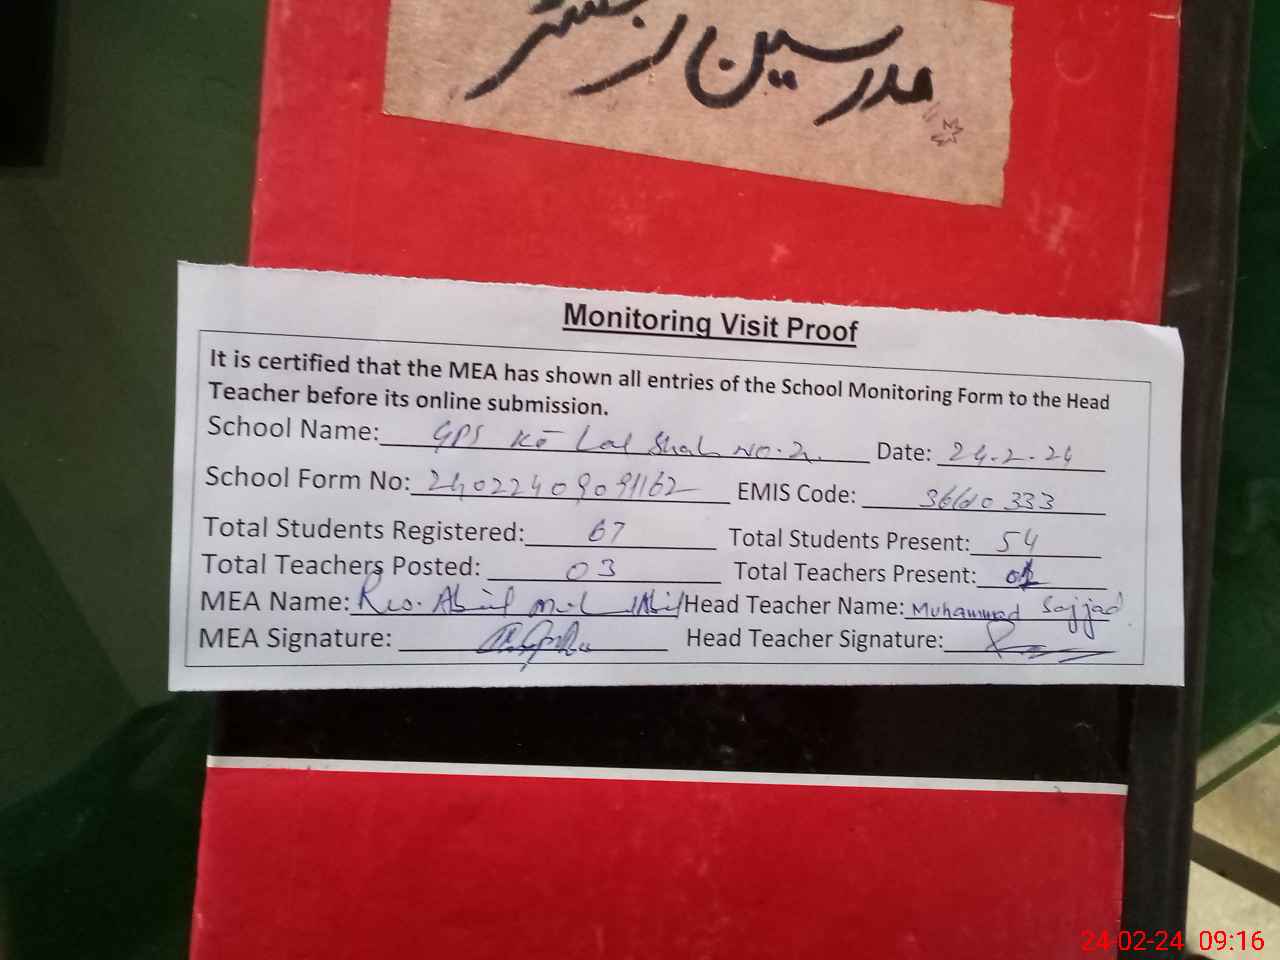 مدرسین رجسٹر
Monitoring Visit Proof
It is certified that the MEA has shown all entries of the School Monitoring Form to the Head
Teacher before its online submission.
School Name: GPS Lal Shah No.2. Date: 24.2.24
School Form No: 24022409091162 EMIS Code: 333
Total Students Registered: 67 Total Students Present: 54
Total Teachers Posted: 03 Total Teachers Present:
MEA Name: Head Teacher Name: Muhammad Sajjad
MEA Signature: Head Teacher Signature:
24-02-24 09:16